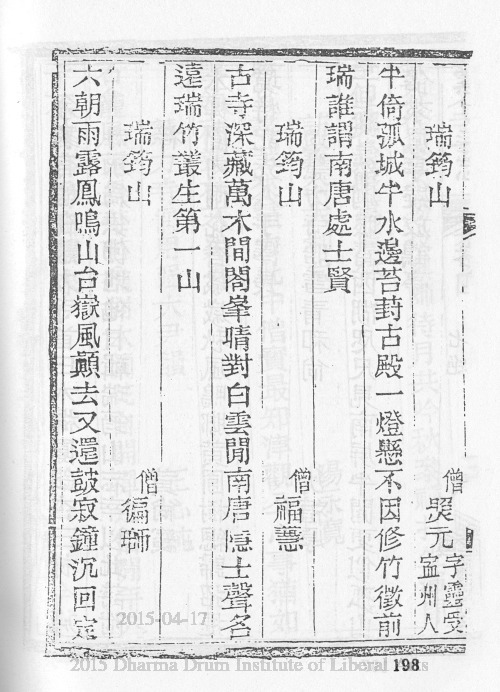 瑞筠山
僧 炅元 字靈受 寍州人
半倚孤城半水邊苔葑古殿一燈懸不因修竹徵前
瑞誰謂南唐處士賢
瑞筠山
僧 福慧
古寺深藏萬木間閣峯晴對白雲閒南唐隱士聲名
遠瑞竹叢生第一山
瑞筠山
僧
六朝雨露鳳鳴山台嶽風顛去又還鼓寂鐘沉回定
198
2015-04-17
2015 Dharma Drum Institute of Liberal Arts